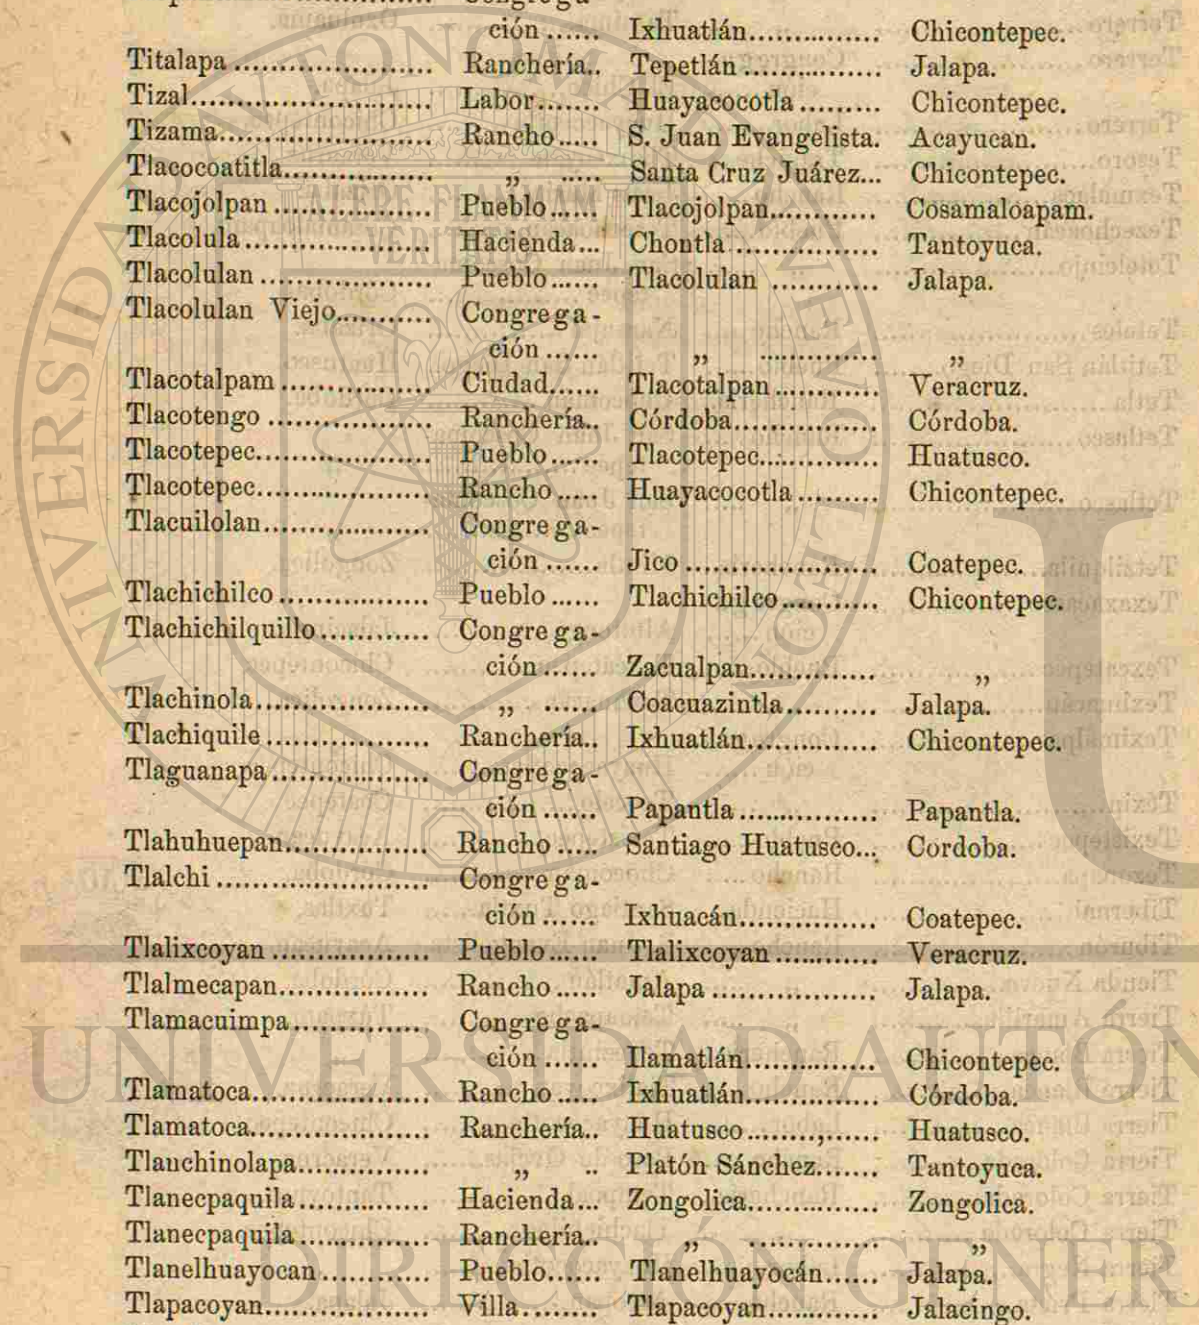 ción ...... Ixhuatlán............... Chicontepec.
Titalapa ...................... Ranchería.. Tepetlán ............... Jalapa.
Tizal.......................... Labor....... Huayacocotla ......... Chicontepec.
Tizama....................... Rancho ..... S. Juan Evangelista. Acayucan.
Tlacocoatitla................ „ ..... Santa Cruz Juárez... Chicontepec.
Tlacojolpan ................. Pueblo...... Tlacojolpan............ Cosamaloapam.
Tlacolula .................... Hacienda... Chontla ................ Tantoyuca.
Tlacolulan ................... Pueblo...... Tlacolulan ............ Jalapa.
Tlacolulan Viejo........... Congrega-
ción ...... „ ............. „
Tlacotalpam ................ Ciudad...... Tlacotalpan ............ Veracruz.
Tlacotengo .................. Ranchería.. Córdoba................ Córdoba.
Tlacotepec................... Pueblo...... Tlacotepec............. Huatusco.
Tlacotepec................... Rancho ..... Huayacocotla ......... Chicontepec.
Tlacuilolan.................. Congrega-
ción ...... Jico ..................... Coatepec.
Tlachichilco ................. Pueblo ...... Tlachichilco ........... Chicontepec.
Tlachichilquillo............ Congrega-
ción ...... Zacualpan.............. „
Tlachinola................... „ ...... Coacuazintla.......... Jalapa.
Tlachiquile .................. Ranchería.. Ixhuatlán............... Chicontepec.
Tlaguanapa ................. Congrega-
ción ...... Papantla ............... Papantla.
Tlahuhuepan................ Rancho ..... Santiago Huatusco... Cordoba.
Tlalchi ....................... Congrega-
ción ...... Ixhuacán............... Coatepec.
Tlalixcoyan ................. Pueblo...... Tlalixcoyan ............ Veracruz.
Tlalmecapan................. Rancho ..... Jalapa .................. Jalapa.
Tlamacuimpa.............. Congrega-
ción ...... Ilamatlán.............. Chicontepec.
Tlamatoca.................... Rancho ..... Ixhuatlán............... Córdoba.
Tlamatoca.................... Ranchería.. Huatusco ........,...... Huatusco.
Tlanchinolapa............... „ .. Platón Sánchez....... Tantoyuca.
Tlanecpaquila............... Hacienda... Zongolica............... Zongolica.
Tlanecpaquila .............. Ranchería.. „ .............. „
Tlanelhuayocan ............ Pueblo...... Tlanelhuayocán...... Jalapa.
Tlapacoyan.................. Villa......... Tlapacoyan............ Jalacingo.
ALERE FLAMMAM
VERITATIS
UNIVERSIDAD AUTÓN
DIRECCIÓN GENER